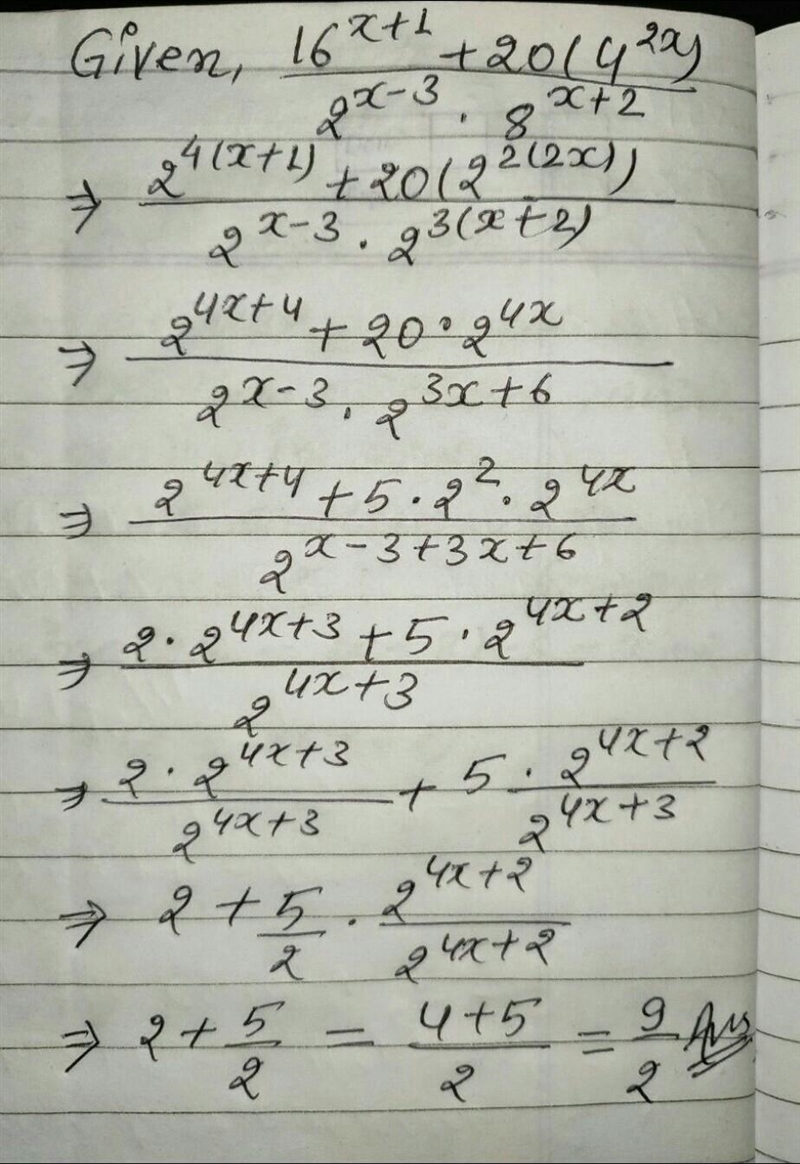 Given, \frac{16^{x+1} + 20(4^{2x})}{2^{x-3} \cdot 8^{x+2}}
⇒ \frac{2^{4(x+1)} + 20(2^{2(2x)})}{2^{x-3} \cdot 2^{3(x+2)}}
⇒ \frac{2^{4x+4} + 20 \cdot 2^{4x}}{2^{x-3} \cdot 2^{3x+6}}
⇒ \frac{2^{4x+4} + 5 \cdot 2^{2} \cdot 2^{4x}}{2^{x-3+3x+6}}
⇒ \frac{2 \cdot 2^{4x+3} + 5 \cdot 2^{4x+2}}{2^{4x+3}}
⇒ \frac{2 \cdot 2^{4x+3}}{2^{4x+3}} + 5 \cdot \frac{2^{4x+2}}{2^{4x+3}}
⇒ 2 + \frac{5}{2} \cdot \frac{2^{4x+2}}{2^{4x+2}}
⇒ 2 + \frac{5}{2} = \frac{4+5}{2} = \frac{9}{2} Ans